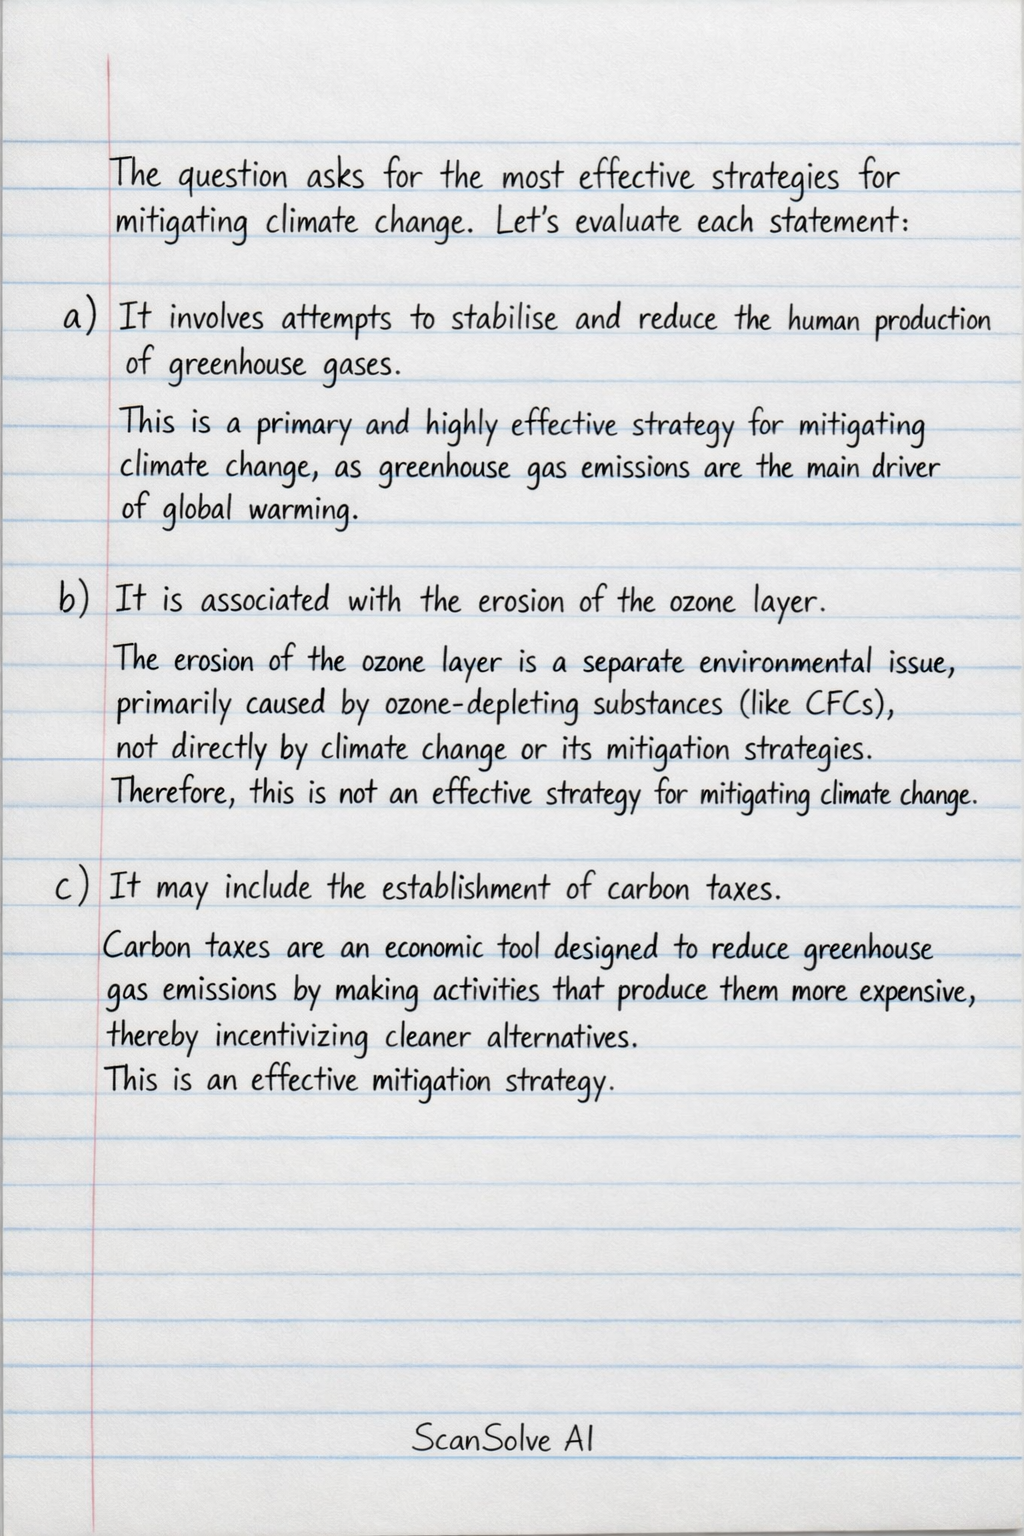 The question asks for the most effective strategies for
mitigating climate change. Let's evaluate each statement:
a) It involves attempts to stabilise and reduce the human production
of greenhouse gases.
This is a primary and highly effective strategy for mitigating
climate change, as greenhouse gas emissions are the main driver
of global warming.
b) It is associated with the erosion of the ozone layer.
The erosion of the ozone layer is a separate environmental issue,
primarily caused by ozone-depleting substances (like CFCs),
not directly by climate change or its mitigation strategies.
Therefore, this is not an effective strategy for mitigating climate change.
c) It may include the establishment of carbon taxes.
Carbon taxes are an economic tool designed to reduce greenhouse
gas emissions by making activities that produce them more expensive,
thereby incentivizing cleaner alternatives.
This is an effective mitigation strategy.
ScanSolve AI